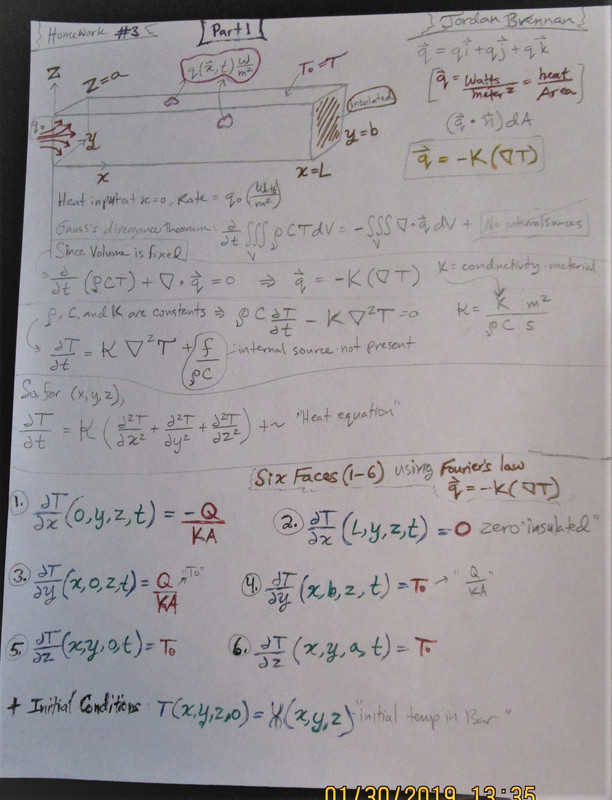 Homework #3
Part 1
Jordan Brennan
z
z=a
q(x⃗,t) W/m²
T₀=T
insulated
q₀
y
y=b
x
x=L
q⃗ = qi⃗ + qj⃗ + qk⃗
[q⃗ = Watts/meter² = heat/Area]
(q⃗·n⃗)dA
q⃗ = -K(∇T)
Heat input at x=0, Rate = q₀ (Watts/m²)
Gauss's divergance theorem: ∂/∂t ∭_V ρCT dV = -∭_V ∇·q⃗ dV + No internal sources
Since Volume is fixed
∂/∂t (ρCT) + ∇·q⃗ = 0 ⇒ q⃗ = -K(∇T)
K = conductivity-material
ρ, C, and K are constants ⇒ ρC ∂T/∂t - K∇²T = 0
K = K/ρC m²/s
∂T/∂t = K∇²T + f/ρC - internal source not present
So, for (x,y,z),
∂T/∂t = K(∂²T/∂x² + ∂²T/∂y² + ∂²T/∂z²) +~ "Heat equation"
Six Faces (1-6) using Fourier's law
q⃗ = -K(∇T)
1. ∂T/∂x (0,y,z,t) = -Q/KA
2. ∂T/∂x (L,y,z,t) = 0 zero "insulated"
3. ∂T/∂y (x,0,z,t) = Q/KA → "T₀"
4. ∂T/∂y (x,b,z,t) = T₀ → "Q/KA"
5. ∂T/∂z (x,y,0,t) = T₀
6. ∂T/∂z (x,y,a,t) = T₀
+ Initial Conditions T(x,y,z,0) = (x,y,z) "initial temp in Bar"
01/30/2019 13:35